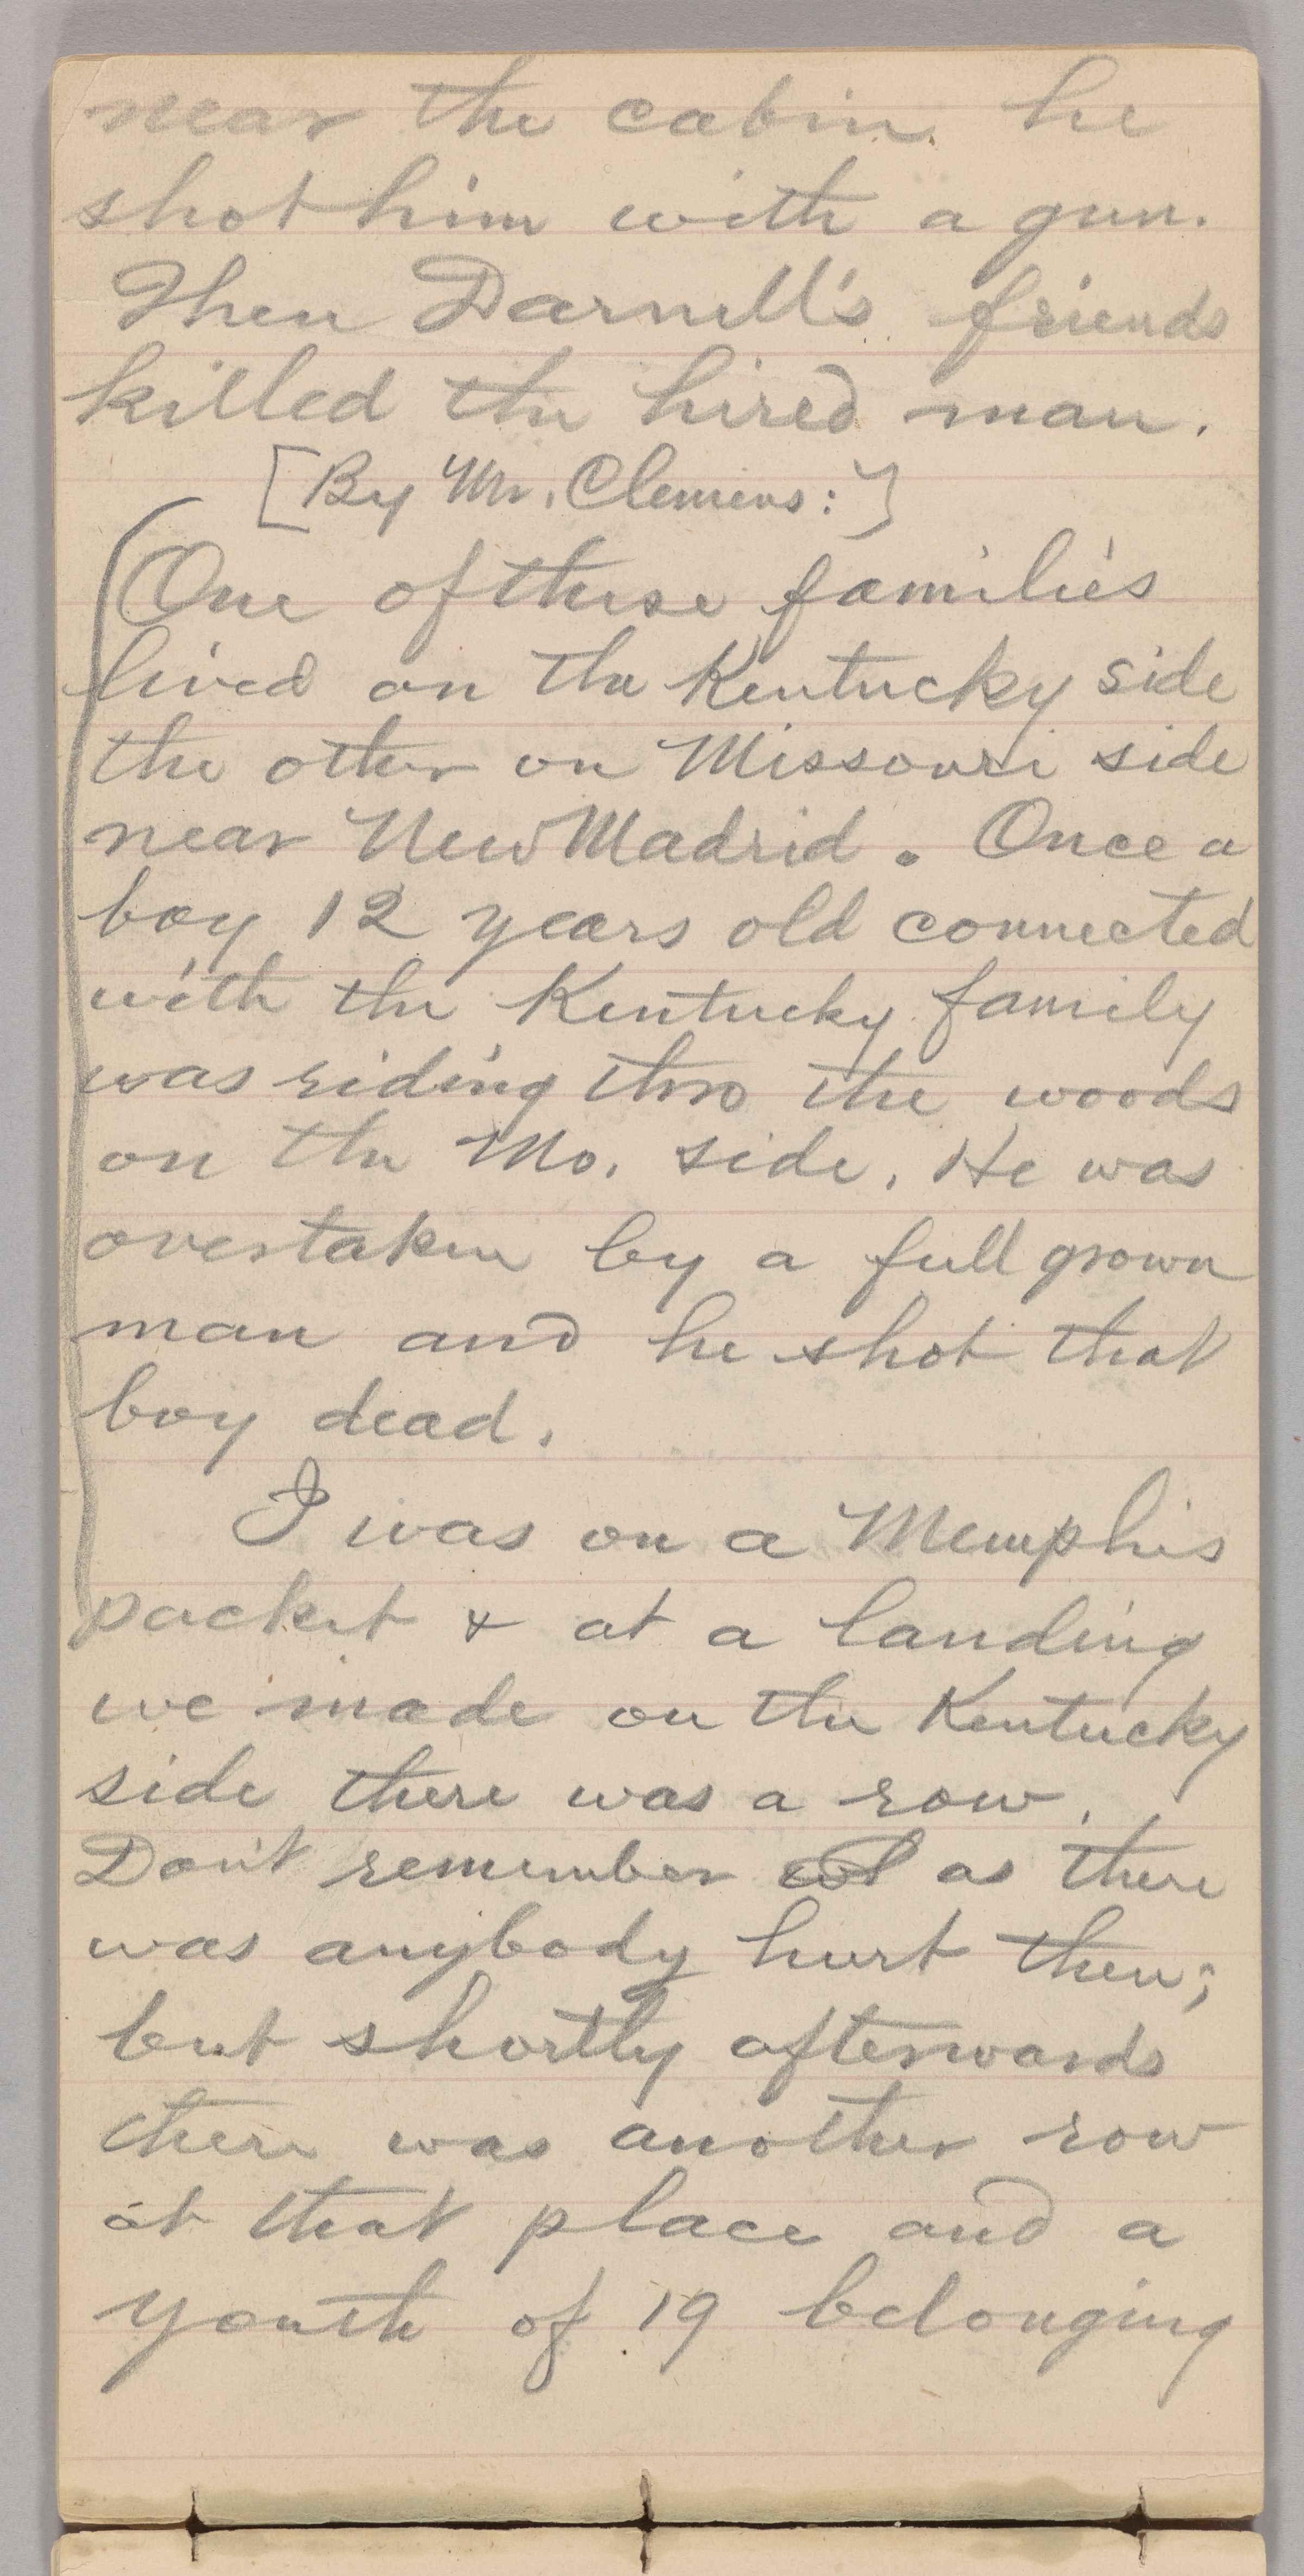 near the cabin he
shot him with a gun.
Then Darnell's friends
killed the hired man.
[By Mr. Clemens:]
One of these families
lived on the Kentucky side
the other on Missouri side
near New Madrid. Once a
boy 12 years old connected
with the Kentucky family
was riding thro the woods
on the Mo. side. He was
overtaken by a full grown
man and he shot that
boy dead.
I was on a Memphis
packet & at a landing
we made on the Kentucky
side there was a row.
Don't remember as there
was anybody hurt then;
but shortly afterwards
there was another row
at that place and a
youth of 19 belonging